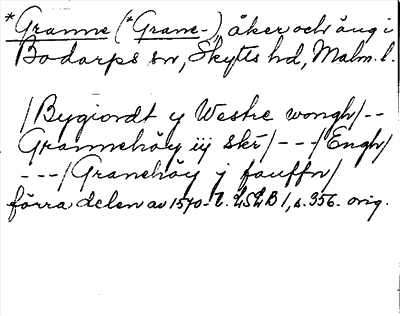 *Granne (*Grane-), åker och äng i
Bodarps sn, Skytts hd, Malm. l.
/Bygiordt y Westre wongh/--
Grannehöy iij skr/---/Engh/
---/Granehöy j fauffn/
förra delen av 1570-t. LSLB I, s. 356. orig.